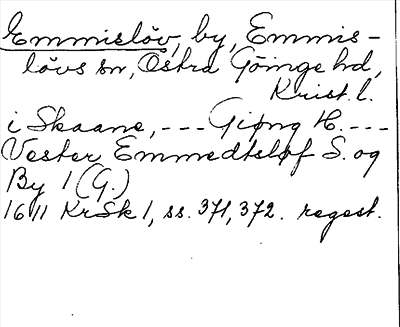 Emmislöv, by, Emmis-
lövs sn, Östra Göinge hd,
Krist. l.
i Skaane, --- Giøng H. ---
Vester Emmedtsløf S. og
By 1 (G.)
1611 KrSk 1, ss. 371, 372. regest.